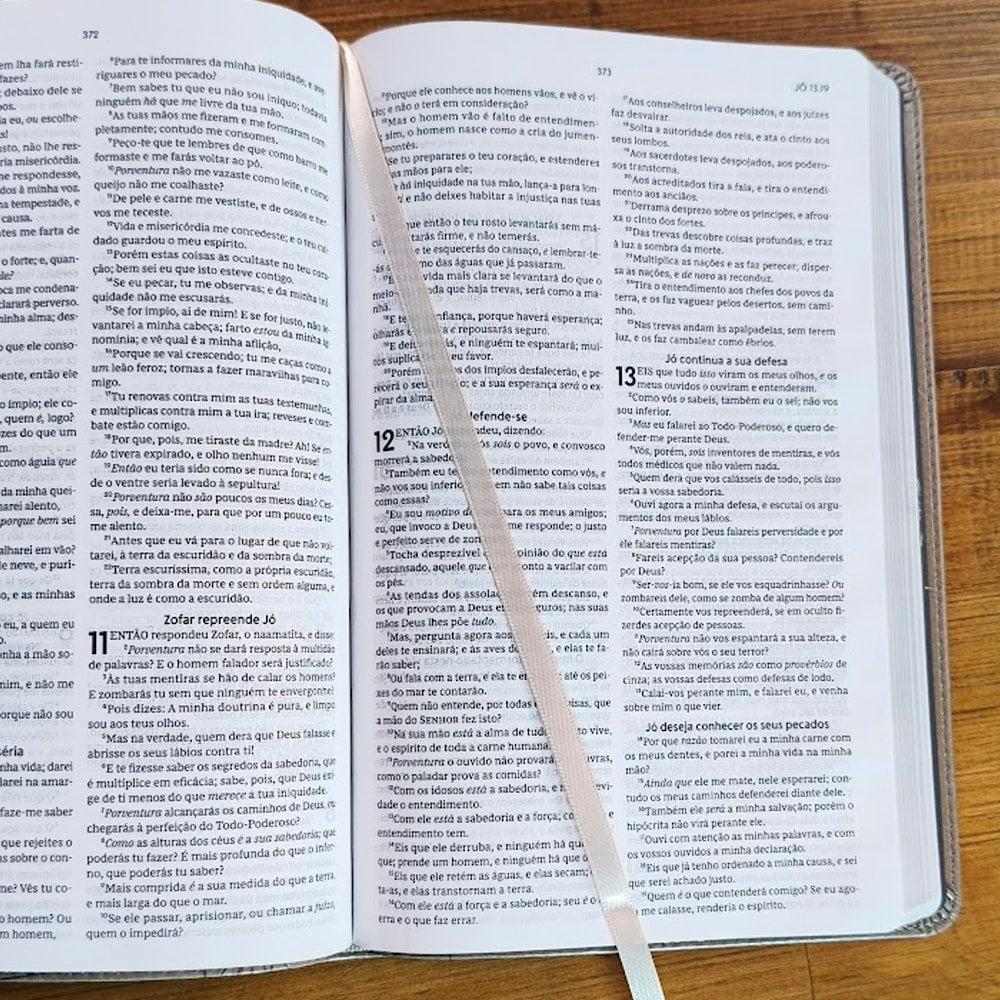 372
em lha fará resti-
fazes?
; debaixo dele se
pos.
ia eu, ou escolhe-
s!
sto, não lhe res-
ria misericórdia.
e respondesse,
dos à minha voz.
na tempestade, e
causa.
tes me farta de
o forte; e, quan-
le?
oca me condena-
clarará perverso.
minha alma; des-
o que ele conso-
pente, então ele
o ímpio; ele co-
quem é, logo?
zes do que um
m.
como águia que
da minha quei-
narei alento,
porque bem sei
alharei em vão?
e neve, e puri-
o, e as minhas
eu, a quem eu
o.
onha a mão so-
mim, e não me
orque não sou
séria
inha vida; darei
larei na amar-
faze-me saber
que rejeites o
as sobre o con-
me? Vês tu co-
homem? Ou
m homem,
⁶Para te informares da minha iniquidade, e ave-
riguares o meu pecado?
⁷Bem sabes tu que eu não sou iníquo; todavia
ninguém há que me livre da tua mão.
⁸As tuas mãos me fizeram e me formaram com-
pletamente; contudo me consomes.
⁹Peço-te que te lembres de que como barro me
formaste e me farás voltar ao pó.
¹⁰Porventura não me vazaste como leite, e como
queijo não me coalhaste?
¹¹De pele e carne me vestiste, e de ossos e ner-
vos me teceste.
¹²Vida e misericórdia me concedeste; e o teu cui-
dado guardou o meu espírito.
¹³Porém estas coisas as ocultaste no teu cora-
ção; bem sei eu que isto esteve contigo.
¹⁴Se eu pecar, tu me observas; e da minha ini-
quidade não me escusarás.
¹⁵Se for ímpio, ai de mim! E se for justo, não le-
vantarei a minha cabeça; farto estou da minha ig-
nomínia; e vê qual é a minha aflição,
¹⁶Porque se vai crescendo; tu me caças como a
um leão feroz; tornas a fazer maravilhas para co-
migo.
¹⁷Tu renovas contra mim as tuas testemunhas,
e multiplicas contra mim a tua ira; reveses e com-
bate estão comigo.
¹⁸Por que, pois, me tiraste da madre? Ah! Se en-
tão tivera expirado, e olho nenhum me visse!
¹⁹Então eu teria sido como se nunca fora; e des-
de o ventre seria levado à sepultura!
²⁰Porventura não são poucos os meus dias? Ces-
sa, pois, e deixa-me, para que por um pouco eu to-
me alento.
²¹Antes que eu vá para o lugar de que não vol-
tarei, à terra da escuridão e da sombra da morte;
²²Terra escuríssima, como a própria escuridão,
terra da sombra da morte e sem ordem alguma, e
onde a luz é como a escuridão.
Zofar repreende Jó
11 ENTÃO respondeu Zofar, o naamatita, e disse:
²Porventura não se dará resposta à multidão
de palavras? E o homem falador será justificado?
³Às tuas mentiras se hão de calar os homens?
E zombarás tu sem que ninguém te envergonhe?
⁴Pois dizes: A minha doutrina é pura, e limpo
sou aos teus olhos.
⁵Mas na verdade, quem dera que Deus falasse e
abrisse os seus lábios contra ti!
⁶E te fizesse saber os segredos da sabedoria, que
é multíplice em eficácia; sabe, pois, que Deus exi-
ge de ti menos do que merece a tua iniquidade.
⁷Porventura alcançarás os caminhos de Deus, ou
chegarás à perfeição do Todo-Poderoso?
⁸Como as alturas dos céus é a sua sabedoria; que
poderás tu fazer? É mais profunda do que o infer-
no, que poderás tu saber?
⁹Mais comprida é a sua medida do que a terra,
e mais larga do que o mar.
¹⁰Se ele passar, aprisionar, ou chamar a juízo,
quem o impedirá?
373
¹¹Porque ele conhece aos homens vãos, e vê o ví-
cio; e não o terá em consideração?
¹²Mas o homem vão é falto de entendimen-
; sim, o homem nasce como a cria do jumen-
montês.
se tu preparares o teu coração, e estenderes
as mãos para ele;
há iniquidade na tua mão, lança-a para lon-
e não deixes habitar a injustiça nas tuas
que então o teu rosto levantarás sem má-
tarás firme, e não temerás.
te esquecerás do cansaço, e lembrar-te-
ás mo das águas que já passaram.
vida mais clara se levantará do que o
meio- nda que haja trevas, será como a ma-
nhã.
¹⁸E te nfiança, porque haverá esperança;
olharás e repousarás seguro.
¹⁹E deit e ninguém te espantará; mui-
tos suplica eu favor.
²⁰Porém s dos ímpios desfalecerão, e pe-
recerá o seu e a sua esperança será o ex-
pirar da alma
defende-se
12 ENTÃO Jó ndeu, dizendo:
²Na verd ós sois o povo, e convosco
morrerá a sabedo
³Também eu te tendimento como vós, e
não vos sou inferio em não sabe tais coisas
como essas?
⁴Eu sou motivo d ara os meus amigos;
eu, que invoco a Deus me responde; o justo
e perfeito serve de zom
⁵Tocha desprezível pinião do que está
descansado, aquele que onto a vacilar com
os pés.
⁶As tendas dos assolad êm descanso, e
os que provocam a Deus e guros; nas suas
mãos Deus lhes põe tudo.
⁷Mas, pergunta agora aos s, e cada um
deles te ensinará; e às aves d e elas te fa-
rão saber;
⁸Ou fala com a terra, e ela te en até os pei-
xes do mar te contarão.
⁹Quem não entende, por todas oisas, que
a mão do SENHOR fez isto?
¹⁰Na sua mão está a alma de tudo to vive,
e o espírito de toda a carne humana
¹¹Porventura o ouvido não provará vras,
como o paladar prova as comidas?
¹²Com os idosos está a sabedoria, e n vi-
dade o entendimento.
¹³Com ele está a sabedoria e a força; con
entendimento tem.
¹⁴Eis que ele derruba, e ninguém há qu
que; prende um homem, e ninguém há que
¹⁵Eis que ele retém as águas, e elas secam;
ta-as, e elas transtornam a terra.
¹⁶Com ele está a força e a sabedoria; seu é o
erra e o que faz errar.
JÓ 13.19
¹⁷Aos conselheiros leva despojados, e aos juízes
faz desvairar.
¹⁸Solta a autoridade dos reis, e ata o cinto aos
seus lombos.
¹⁹Aos sacerdotes leva despojados, aos podero-
sos transtorna.
²⁰Aos acreditados tira a fala, e tira o entendi-
mento aos anciãos.
²¹Derrama desprezo sobre os príncipes, e afrou-
xa o cinto dos fortes.
²²Das trevas descobre coisas profundas, e traz
à luz a sombra da morte.
²³Multiplica as nações e as faz perecer; disper-
sa as nações, e de novo as reconduz.
²⁴Tira o entendimento aos chefes dos povos da
terra, e os faz vaguear pelos desertos, sem cami-
nho.
²⁵Nas trevas andam às apalpadelas, sem terem
luz, e os faz cambalear como ébrios.
Jó continua a sua defesa
13 EIS que tudo isto viram os meus olhos, e os
meus ouvidos o ouviram e entenderam.
²Como vós o sabeis, também eu o sei; não vos
sou inferior.
³Mas eu falarei ao Todo-Poderoso, e quero de-
fender-me perante Deus.
⁴Vós, porém, sois inventores de mentiras, e vós
todos médicos que não valem nada.
⁵Quem dera que vos calásseis de todo, pois isso
seria a vossa sabedoria.
⁶Ouvi agora a minha defesa, e escutai os argu-
mentos dos meus lábios.
⁷Porventura por Deus falareis perversidade e por
ele falareis mentiras?
⁸Fareis acepção da sua pessoa? Contendereis
por Deus?
⁹Ser-vos-ia bom, se ele vos esquadrinhasse? Ou
zombareis dele, como se zomba de algum homem?
¹⁰Certamente vos repreenderá, se em oculto fi-
zerdes acepção de pessoas.
¹¹Porventura não vos espantará a sua alteza, e
não cairá sobre vós o seu terror?
¹²As vossas memórias são como provérbios de
cinza; as vossas defesas como defesas de lodo.
¹³Calai-vos perante mim, e falarei eu, e venha
sobre mim o que vier.
Jó deseja conhecer os seus pecados
¹⁴Por que razão tomarei eu a minha carne com
os meus dentes, e porei a minha vida na minha
mão?
¹⁵Ainda que ele me mate, nele esperarei; con-
tudo os meus caminhos defenderei diante dele.
¹⁶Também ele será a minha salvação; porém o
hipócrita não virá perante ele.
¹⁷Ouvi com atenção as minhas palavras, e com
os vossos ouvidos a minha declaração.
¹⁸Eis que já tenho ordenado a minha causa, e sei
que serei achado justo.
¹⁹Quem é o que contenderá comigo? Se eu ago-
me calasse, renderia o espírito.